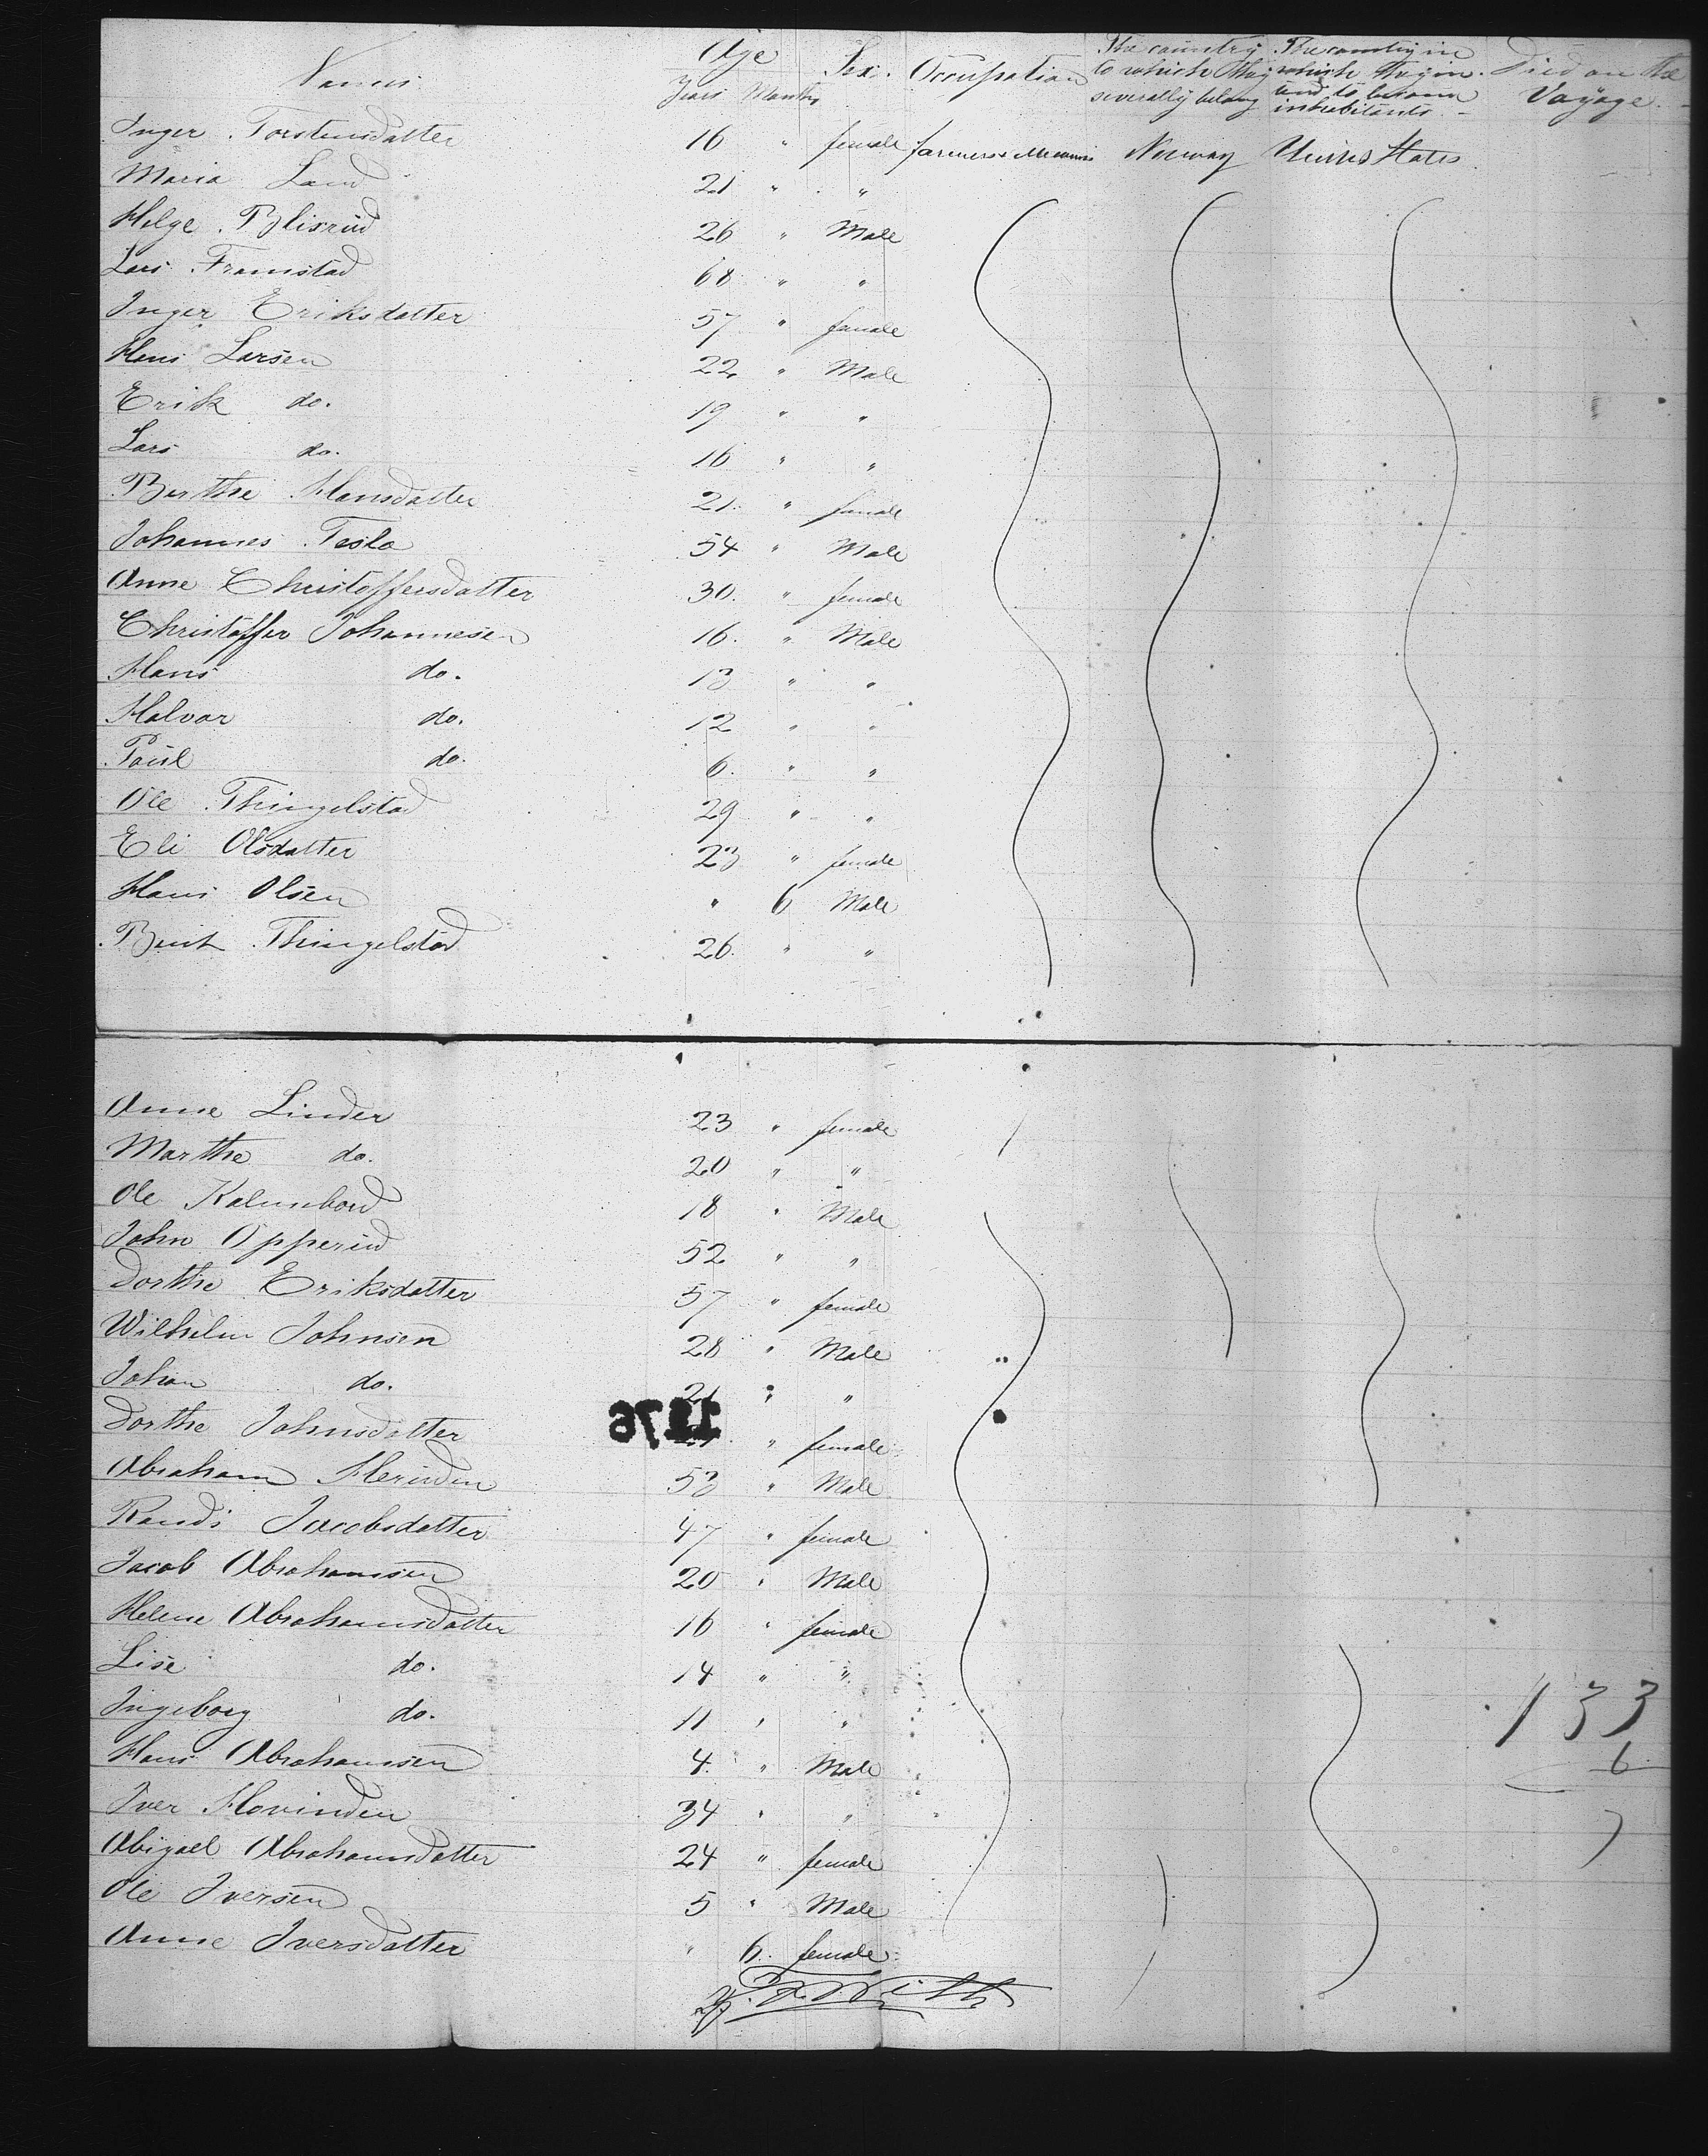 Names Age Sex. Occupation The country to which they severally belong The country in which they in- tend to become inhabitants.- Died on the Voyage.-
Years Months
Inger Torstensdatter 16 " female farmers & Mecanics Norway United States
Maria Land 21 " "
Helge Blisrud 26 " Male
Lars Framstad 68 " "
Inger Eriksdatter 57 " female
Hans Larsen 22 " Male
Erik do. 19 " "
Lars do. 16 " "
Berthe Hansdatter 21 " female
Johannes Tesla 54 " Male
Anne Christoffersdatter 30. " female
Christoffer Johannesen 16. " Male
Hans do. 13 " "
Halvor do. 12 " "
Paul do. 6. " "
Ole Thingelstad 29 " "
Eli Olsdatter 23 " female
Hans Olsen " 6 Male
Thingelstad 26. " "
Anne Linder 23 " female
Marthe do. 20 " "
Ole 18 " Male
John Opperud 52 " "
Dorthe Eriksdatter 57 " female
Wilhelm Johnsen 28 " Male
Johan do. 21 " "
Dorthe Johnsdatter " female
1876
Abraham 53 " Male
Randi Jacobsdatter 47 " female
Jacob Abrahamsen 20 " Male
Helene Abrahamsdatter 16 " female
Lise do. 14 " "
Ingeborg do. 11 " "
Hans Abrahamsen 4. " Male
Iver Hovinden 34 " "
Abigael Abrahamsdatter 24 " female
Ole Iversen 5 " Male
Anne Iversdatter " 6. female
133
6
7